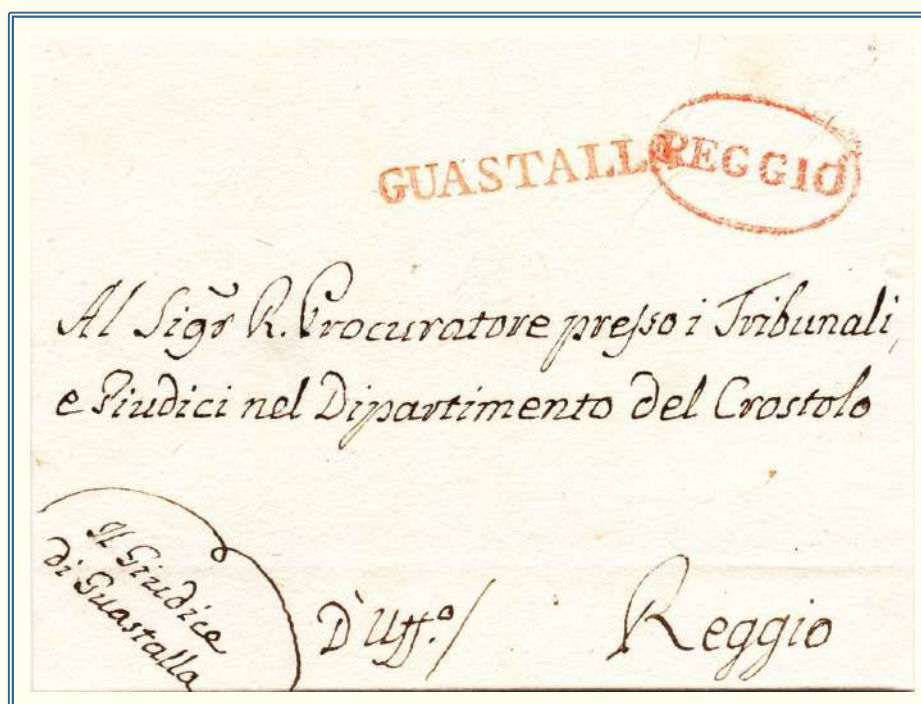 GUASTALLA REGGIO
Al Sigr R. Procuratore presso i Tribunali,
e Giudici nel Dipartimento del Crostolo
Il Giudice
di Guastalla
D'Uff.o/ Reggio